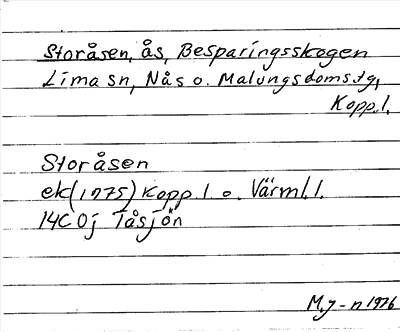 Storåsen, ås, Besparingsskogen
Lima sn, Nås o. Malungs doms.tg,
Kopp. l.
Storåsen
ek(1975) Kopp. l. o. Värml. l.
14C 0j Tåsjön
M.J-n 1976